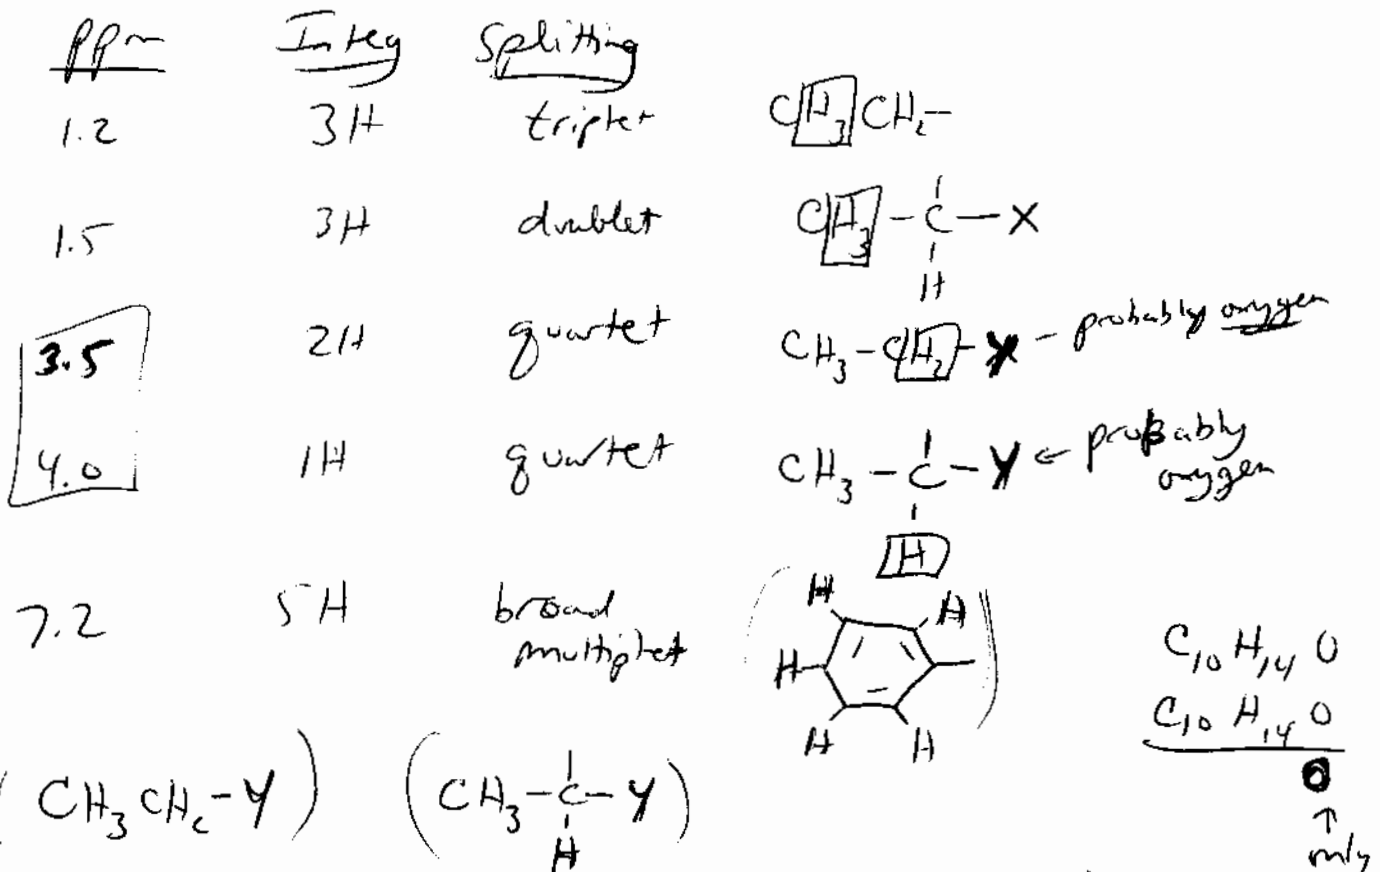 ppm Integ Splitting
1.2 3H triplet CH3CH2–
1.5 3H doublet CH3–C–X
H
3.5 2H quartet CH3–CH2–Y – probably oxygen
4.0 1H quartet CH3–C–Y ← probably
oxygen
H
7.2 5H broad
multiplet
H H
H
H H
C10H14O
C10H14O
O
↑
only
(CH3CH2–Y) (CH3–C–Y)
H